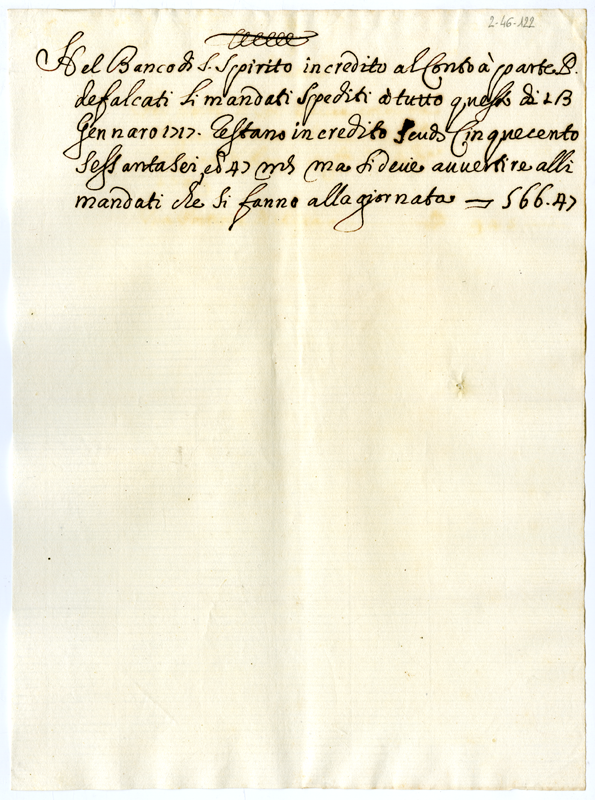 2-46-122
Nel Banco di S. Spirito in credito al Conto à parte
defalcati li mandati spediti à tutto questo dì 13
Gennaro 1717. restano in credito scudi Cinquecento
sessantasei, ed 47 m.ta ma si deve avvertire alli
mandati che si fanno alla giornata — 566.47